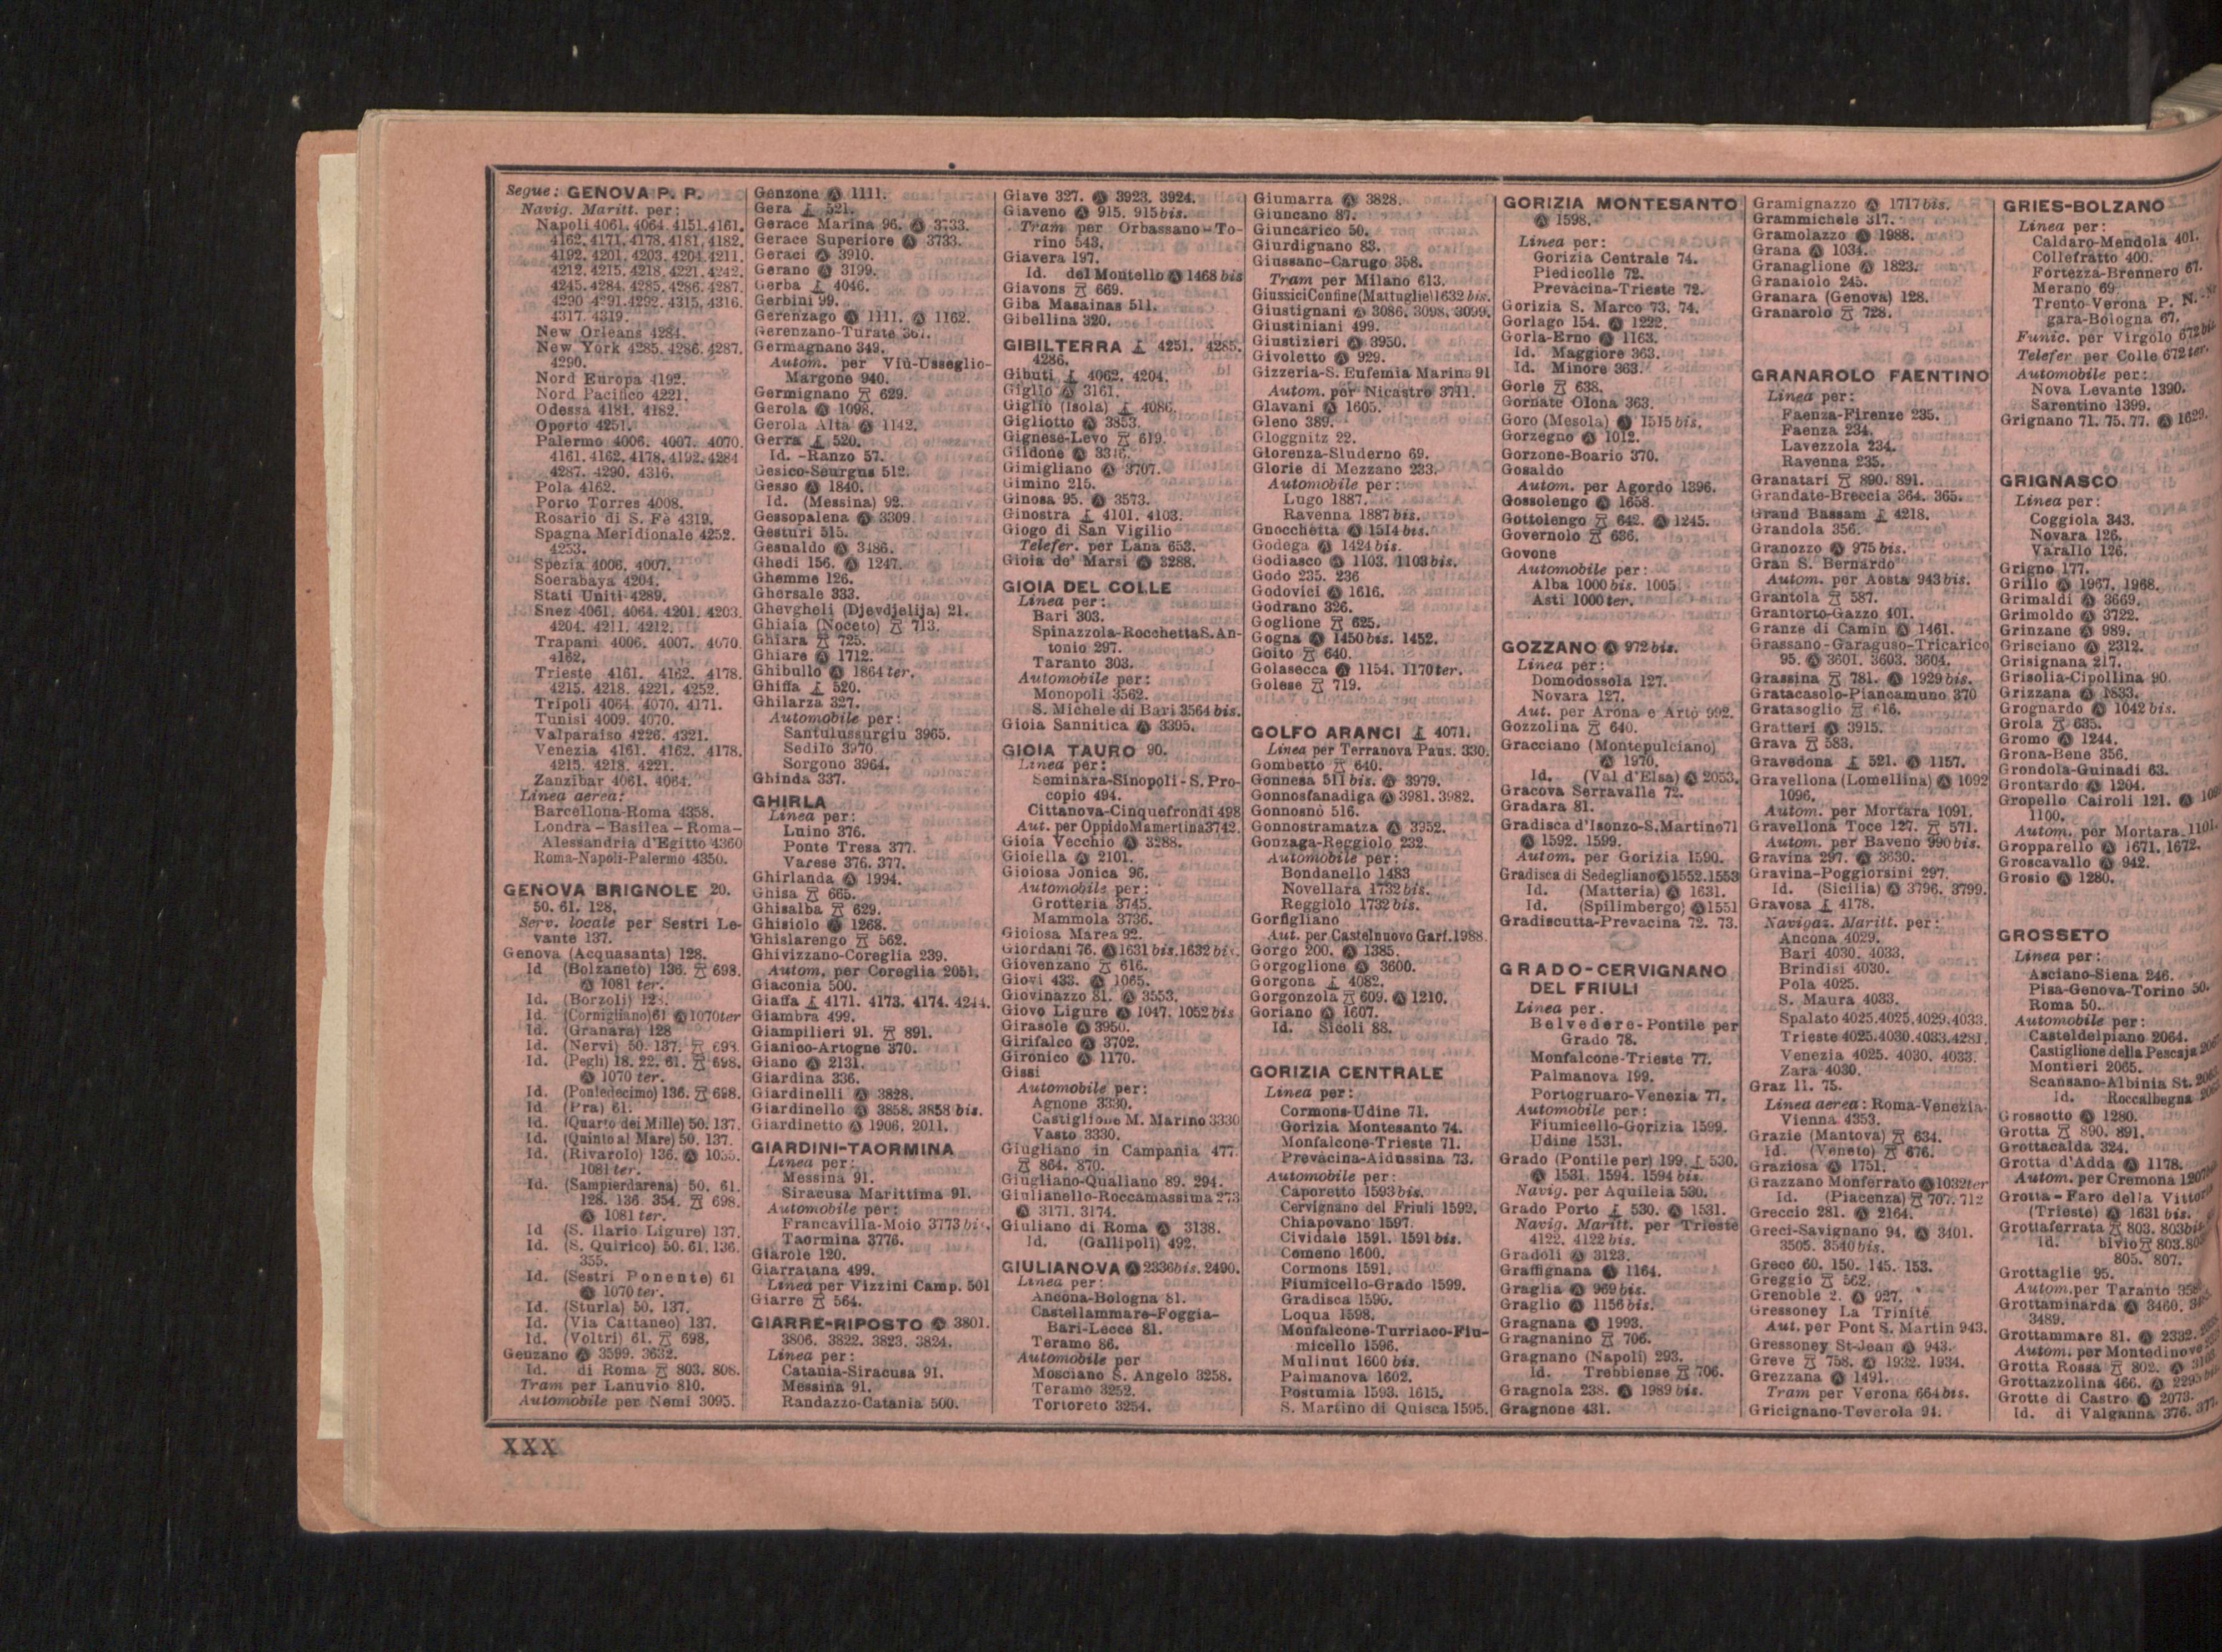 Segue: GENOVA P. P.
Navig. Maritt. per:
Napoli 4061. 4064. 4151. 4161.
4162. 4171. 4178. 4181. 4182.
4192. 4201. 4203. 4204. 4211.
4212. 4215. 4218. 4221. 4242.
4245. 4284. 4285. 4286. 4287.
4290. 4291. 4292. 4315. 4316.
4317. 4319.
New Orleans 4284.
New York 4285. 4286. 4287.
4290.
Nord Europa 4192.
Nord Pacifico 4221.
Odessa 4181. 4182.
Oporto 4251.
Palermo 4006. 4007. 4070.
4161. 4162. 4178. 4192. 4284
4287. 4290. 4316.
Pola 4162.
Porto Torres 4008.
Rosario di S. Fè 4319.
Spagna Meridionale 4252.
4253.
Spezia 4006. 4007.
Soerabaya 4204.
Stati Uniti 4289.
Snez 4061. 4064. 4201. 4203.
4204. 4211. 4212.
Trapani 4006. 4007. 4070.
4162.
Trieste 4161. 4162. 4178.
4215. 4218. 4221. 4252.
Tripoli 4064. 4070. 4171.
Tunisi 4009. 4070.
Valparaiso 4226. 4321.
Venezia 4161. 4162. 4178.
4215. 4218. 4221.
Zanzibar 4061. 4064.
Linea aerea:
Barcellona-Roma 4358.
Londra - Basilea - Roma-
Alessandria d'Egitto 4360
Roma-Napoli-Palermo 4350.
GENOVA BRIGNOLE 20.
50. 61. 128.
Serv. locale per Sestri Le-
vante 137.
Genova (Acquasanta) 128.
Id (Bolzaneto) 136. 698.
Ⓐ 1081 ter.
Id. (Borzoli) 128.
Id. (Cornigliano) 61 Ⓐ 1070ter
Id. (Granara) 128
Id. (Nervi) 50. 137. 698.
Id. (Pegli) 18. 22. 61. 698.
Ⓐ 1070 ter.
Id. (Pontedecimo) 136. 698.
Id (Pra) 61.
Id. (Quarto dei Mille) 50. 137.
Id. (Quinto al Mare) 50. 137.
Id. (Rivarolo) 136. Ⓐ 1035.
1081 ter.
Id. (Sampierdarena) 50. 61.
128. 136. 354. 698.
Ⓐ 1081 ter.
Id (S. Ilario Ligure) 137.
Id. (S. Quirico) 50. 61. 136.
355.
Id. (Sestri Ponente) 61
Ⓐ 1070 ter.
Id. (Sturla) 50. 137.
Id. (Via Cattaneo) 137.
Id. (Voltri) 61. 698.
Genzano Ⓐ 3599. 3632.
Id. di Roma 803. 808.
Tram per Lanuvio 810.
Automobile per Nemi 3095.
Genzone Ⓐ 1111.
Gera 521.
Gerace Marina 96. Ⓐ 3733.
Gerace Superiore Ⓐ 3733.
Geraci Ⓐ 3910.
Gerano Ⓐ 3199.
Gerba 4046.
Gerbini 99.
Gerenzago Ⓐ 1111. Ⓐ 1162.
Gerenzano-Turate 361.
Germagnano 349.
Autom. per Viù-Usseglio-
Margone 940.
Germignano 629.
Gerola Ⓐ 1098.
Gerola Alta Ⓐ 1142.
Gerra 520.
Id. -Ranzo 57.
Gesico-Seurgus 512.
Gesso Ⓐ 1840.
Id. (Messina) 92.
Gessopalena Ⓐ 3309.
Gesturi 515.
Gesualdo Ⓐ 3486.
Ghedi 156. Ⓐ 1247.
Ghemme 126.
Ghersale 333.
Ghevgheli (Djevdjelija) 21.
Ghiaia (Noceto) 713.
Ghiara 725.
Ghiare Ⓐ 1712.
Ghibullo Ⓐ 1864 ter.
Ghiffa 520.
Ghilarza 327.
Automobile per:
Santulussurgiu 3965.
Sedilo 3970
Sorgono 3964.
Ghinda 337.
GHIRLA
Linea per:
Luino 376.
Ponte Tresa 377.
Varese 376. 377.
Ghirlanda Ⓐ 1994.
Ghisa 665.
Ghisalba 629.
Ghisiolo Ⓐ 1268.
Ghislarengo 562.
Ghivizzano-Coreglia 239.
Autom. per Coreglia 2051.
Giaconia 500.
Giaffa 4171. 4173. 4174. 4244.
Giambra 499.
Giampilieri 91. 891.
Gianico-Artogne 370.
Giano Ⓐ 2131.
Giardina 336.
Giardinelli Ⓐ 3828.
Giardinello Ⓐ 3858. 3858 bis.
Giardinetto Ⓐ 1906. 2011.
GIARDINI-TAORMINA
Linea per:
Messina 91.
Siracusa Marittima 91.
Automobile per:
Francavilla-Moio 3773 bis.
Taormina 3776.
Giarole 120.
Giarratana 499.
Linea per Vizzini Camp. 501
Giarre 564.
GIARRE-RIPOSTO Ⓐ 3801.
3806. 3822. 3823. 3824.
Linea per:
Catania-Siracusa 91.
Messina 91.
Randazzo-Catania 500.
Giave 327. Ⓐ 3923. 3924.
Giaveno Ⓐ 915. 915bis.
Tram per Orbassano-To-
rino 543.
Giavera 197.
Id. del Montello Ⓐ 1468 bis
Giavons 669.
Giba Masainas 511.
Gibellina 320.
GIBILTERRA 4251. 4285.
4286.
Gibuti 4062. 4204.
Giglio Ⓐ 3161.
Giglio (Isola) 4086.
Gigliotto Ⓐ 3853.
Gignese-Levo 619.
Gildone Ⓐ
Gimigliano Ⓐ 3707.
Gimino 215.
Ginosa 95. Ⓐ 3573.
Ginostra 4101. 4103.
Giogo di San Vigilio
Telefer. per Lana 653.
Gioia de' Marsi Ⓐ 3288.
GIOIA DEL COLLE
Linea per:
Bari 303.
Spinazzola-Rocchetta S. An-
tonio 297.
Taranto 303.
Automobile per:
Monopoli 3562.
S. Michele di Bari 3564 bis.
Gioia Sannitica Ⓐ 3395.
GIOIA TAURO 90.
Linea per:
Seminara-Sinopoli-S. Pro-
copio 494.
Cittanova-Cinquefrondi 498
Aut. per Oppido Mamertina 3742.
Gioia Vecchio Ⓐ 3288.
Gioiella Ⓐ 2101.
Gioiosa Jonica 96.
Automobile per:
Grotteria 3745.
Mammola 3736.
Gioiosa Marea 92.
Giordani 76. Ⓐ 1631 bis. 1632 bis.
Giovenzano 616.
Giovi 433. Ⓐ 1065.
Giovinazzo 81. Ⓐ 3553.
Giovo Ligure Ⓐ 1047. 1052 bis
Girasole Ⓐ 3950.
Girifalco Ⓐ 3702.
Gironico Ⓐ 1170.
Gissi
Automobile per:
Agnone 3330.
Castiglione M. Marino 3330
Vasto 3330.
Giugliano in Campania 477.
864. 870.
Giugliano-Qualiano 89. 294.
Giulianello-Roccamassima 273
Ⓐ 3171. 3174.
Giuliano di Roma Ⓐ 3138.
Id. (Gallipoli) 492.
GIULIANOVA Ⓐ 2336bis. 2490.
Linea per:
Ancona-Bologna 81.
Castellammare-Foggia-
Bari-Lecce 81.
Teramo 86.
Automobile per
Mosciano S. Angelo 3258.
Teramo 3252.
Tortoreto 3254.
Giumarra Ⓐ 3828.
Giuncano 87.
Giuncarico 50.
Giurdignano 83.
Giussano-Carugo 358.
Tram per Milano 613.
Giussici Confine (Mattuglie) 1632 bis.
Giustignani Ⓐ 3086. 3098. 3099.
Giustiniani 499.
Giustizieri Ⓐ 3950.
Givoletto Ⓐ 929.
Gizzeria-S. Eufemia Marina 91
Autom. per Nicastro 3711.
Glavani Ⓐ 1605.
Gleno 389.
Gloggnitz 22.
Glorenza-Sluderno 69.
Glorie di Mezzano 233.
Automobile per:
Lugo 1887.
Ravenna 1887 bis.
Gnocchetta Ⓐ 1514 bis.
Godega Ⓐ 1424 bis.
Godiasco Ⓐ 1103. 1103 bis.
Godo 235. 236
Godovici Ⓐ 1616.
Godrano 326.
Goglione 625.
Gogna Ⓐ 1450 bis. 1452.
Goito 640.
Golasecca Ⓐ 1154. 1170 ter.
Golese 719.
GOLFO ARANCI 4071.
Linea per Terranova Paus. 330.
Gombetto 640.
Gonnesa 511 bis. Ⓐ 3979.
Gonnosfanadiga Ⓐ 3981. 3982.
Gonnosnò 516.
Gonnostramatza Ⓐ 3952.
Gonzaga-Reggiolo 232.
Automobile per:
Bondanello 1483
Novellara 1732 bis.
Reggiolo 1732 bis.
Gorfigliano
Aut. per Castelnuovo Garf. 1988.
Gorgo 200. Ⓐ 1385.
Gorgoglione Ⓐ 3600.
Gorgona 4082.
Gorgonzola 609. Ⓐ 1210.
Goriano Ⓐ 1607.
Id. Sicoli 88.
GORIZIA CENTRALE
Linea per:
Cormons-Udine 71.
Gorizia Montesanto 74.
Monfalcone-Trieste 71.
Prevacina-Aidussina 73.
Automobile per:
Caporetto 1593 bis.
Cervignano del Friuli 1592.
Chiapovano 1597.
Cividale 1591. 1591 bis.
Comeno 1600.
Cormons 1591.
Fiumicello-Grado 1599.
Gradisca 1590.
Loqua 1598.
Monfalcone-Turriaco-Fiu-
micello 1596.
Mulinut 1600 bis.
Palmanova 1602.
Postumia 1593. 1615.
S. Martino di Quisca 1595.
GORIZIA MONTESANTO
Ⓐ 1598.
Linea per:
Gorizia Centrale 74.
Piedicolle 72.
Prevàcina-Trieste 72.
Gorizia S. Marco 73. 74.
Gorlago 154. Ⓐ 1222.
Gorla-Erno Ⓐ 1163.
Id. Maggiore 363.
Id. Minore 363.
Gorle 638.
Gornate Olona 363.
Goro (Mesola) Ⓐ 1515 bis.
Gorzegno Ⓐ 1012.
Gorzone-Boario 370.
Gosaldo
Autom. per Agordo 1396.
Gossolengo Ⓐ 1658.
Gottolengo 642. Ⓐ 1245.
Governolo 636.
Govone
Automobile per:
Alba 1000 bis. 1005
Asti 1000 ter.
GOZZANO Ⓐ 972 bis.
Linea per:
Domodossola 127.
Novara 127.
Aut. per Arona e Artò 992.
Gozzolina 640.
Gracciano (Montepulciano)
Ⓐ 1970.
Id. (Val d'Elsa) Ⓐ 2053.
Gracova Serravalle 72.
Gradara 81.
Gradisca d'Isonzo-S. Martino 71
Ⓐ 1592. 1599.
Autom. per Gorizia 1590.
Gradisca di Sedegliano Ⓐ 1552. 1553
Id. (Matteria) Ⓐ 1631.
Id. (Spilimbergo) Ⓐ 1551
Gradiscutta-Prevacina 72. 73.
GRADO-CERVIGNANO
DEL FRIULI
Linea per.
Belvedere-Pontile per
Grado 78.
Monfalcone-Trieste 77.
Palmanova 199.
Portogruaro-Venezia 77.
Automobile per:
Fiumicello-Gorizia 1599.
Udine 1531.
Grado (Pontile per) 199. 530.
Ⓐ 1531. 1594. 1594 bis.
Navig. per Aquileia 530.
Grado Porto 530. Ⓐ 1531.
Navig. Maritt. per Trieste
4122. 4122 bis.
Gradoli Ⓐ 3123.
Graffignana Ⓐ 1164.
Graglia Ⓐ 969 bis.
Graglio Ⓐ 1156 bis.
Gragnana Ⓐ 1993.
Gragnanino 706.
Gragnano (Napoli) 293.
Id. Trebbiense 706.
Gragnola 238. Ⓐ 1989 bis.
Gragnone 431.
Gramignazzo Ⓐ 1717 bis.
Grammichele 317.
Gramolazzo Ⓐ 1988.
Grana Ⓐ 1034.
Granaglione Ⓐ 1823.
Granaiolo 245.
Granara (Genova) 128.
Granarolo 728.
GRANAROLO FAENTINO
Linea per:
Faenza-Firenze 235.
Faenza 234.
Lavezzola 234.
Ravenna 235.
Granatari 890. 891.
Grandate-Breccia 364. 365.
Grand Bassam 4218.
Grandola 356.
Granozzo Ⓐ 975 bis.
Gran S. Bernardo
Autom. per Aosta 943 bis.
Grantola 587.
Grantorto-Gazzo 401.
Granze di Camin Ⓐ 1461.
Grassano-Garaguso-Tricarico
95. Ⓐ 3601. 3603. 3604.
Grassina 781. Ⓐ 1929 bis.
Gratacasolo-Piancamuno 370
Gratasoglio 616.
Gratteri Ⓐ 3915.
Grava 583.
Gravedona 521. Ⓐ 1157.
Gravellona (Lomellina) Ⓐ 1092
1096.
Autom. per Mortara 1091.
Gravellona Toce 127. 571.
Autom. per Baveno 990 bis.
Gravina 297. Ⓐ 3630.
Gravina-Poggiorsini 297.
Id. (Sicilia) Ⓐ 3796. 3799.
Gravosa 4178.
Navigaz. Maritt. per:
Ancona 4029.
Bari 4030. 4033.
Brindisi 4030.
Pola 4025.
S. Maura 4033.
Spalato 4025. 4025. 4029. 4033.
Trieste 4025. 4030. 4033. 4281.
Venezia 4025. 4030. 4033.
Zara 4030.
Graz 11. 75.
Linea aerea: Roma-Venezia-
Vienna 4353.
Grazie (Mantova) 634.
Id. (Veneto) 676.
Graziosa Ⓐ 1751.
Grazzano Monferrato Ⓐ 1032ter
Id. (Piacenza) 707. 712
Greccio 281. Ⓐ 2164.
Greci-Savignano 94. Ⓐ 3401.
3505. 3540 bis.
Greco 60. 150. 145. 153.
Greggio 562.
Grenoble 2. Ⓐ 927.
Gressoney La Trinité
Aut. per Pont S. Martin 943.
Gressoney St-Jean Ⓐ 943.
Greve 758. Ⓐ 1932. 1934.
Grezzana Ⓐ 1491.
Tram per Verona 664 bis.
Gricignano-Teverola 94.
GRIES-BOLZANO
Linea per:
Caldaro-Mendola 401.
Collefratto 400.
Fortezza-Brennero 67.
Merano 69
Trento-Verona P. N.
gara-Bologna 67.
Funic. per Virgolo 672 bis
Telefer per Colle 672 ter.
Automobile per:
Nova Levante 1390.
Sarentino 1399.
Grignano 71. 75. 77. Ⓐ 1629.
GRIGNASCO
Linea per:
Coggiola 343.
Novara 126.
Varallo 126.
Grigno 177.
Grillo Ⓐ 1967. 1968.
Grimaldi Ⓐ 3669.
Grimoldo Ⓐ 3722.
Grinzane Ⓐ 989.
Grisciano Ⓐ 2312.
Grisignana 217.
Grisolia-Cipollina 90.
Grizzana Ⓐ 1833.
Grognardo Ⓐ 1042 bis.
Grola 635.
Gromo Ⓐ 1244.
Grona-Bene 356.
Grondola-Guinadi 63.
Grontardo Ⓐ 1204.
Gropello Cairoli 121. Ⓐ
1100.
Autom. per Mortara 1101.
Gropparello Ⓐ 1671. 1672.
Groscavallo Ⓐ 942.
Grosio Ⓐ 1280.
GROSSETO
Linea per:
Asciano-Siena 246.
Pisa-Genova-Torino 50.
Roma 50.
Automobile per:
Casteldelpiano 2064.
Castiglione della Pescaja
Montieri 2065.
Scansano-Albinia St.
Id. Roccalbegna
Grossotto Ⓐ 1280.
Grotta 890. 891.
Grottacalda 324.
Grotta d'Adda Ⓐ 1178.
Autom. per Cremona
Grotta-Faro della Vittoria
(Trieste) Ⓐ 1631 bis.
Grottaferrata 803. 803bis
Id. bivio 803.
805. 807.
Grottaglie 95.
Autom. per Taranto
Grottaminarda Ⓐ 3460.
3489.
Grottammare 81. Ⓐ 2332.
Autom. per Montedinove
Grotta Rossa 802. Ⓐ
Grottazzolina 466. Ⓐ
Grotte di Castro Ⓐ 2073.
Id. di Valganna 376. 377.
XXX